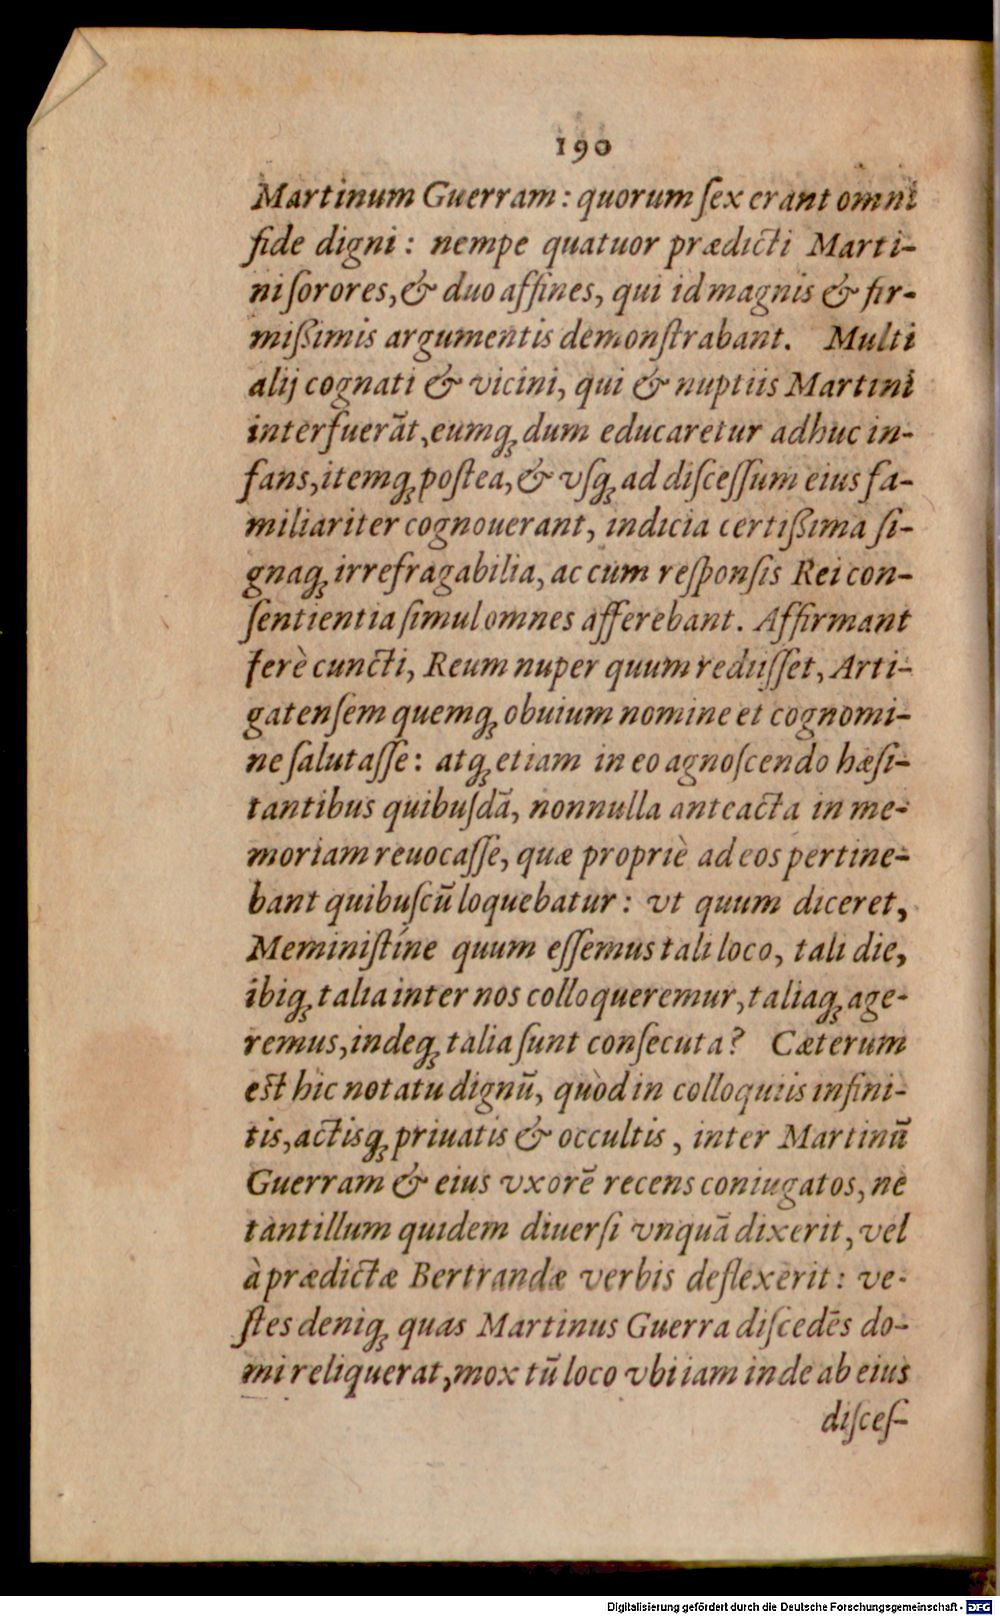 190
Martinum Guerram: quorum ſex erant omni
fide digni: nempe quatuor prædicti Marti-
ni ſorores, & duo affines, qui id magnis & fir-
mißimis argumentis demonſtrabant. Multi
alij cognati & vicini, qui & nuptiis Martini
interfuerāt, eumq; dum educaretur adhuc in-
fans, itemq; poſtea, & vſq; ad diſceſſum eius fa-
miliariter cognouerant, indicia certißima ſi-
gnaq; irrefragabilia, ac cum reſponſis Rei con-
ſentientia ſimul omnes afferebant. Affirmant
ferè cuncti, Reum nuper quum rediiſſet, Arti-
gatenſem quemq; obuium nomine et cognomi-
ne ſalutaſſe: atq; etiam in eo agnoſcendo hæſi-
tantibus quibuſdā, nonnulla anteacta in me-
moriam reuocaſſe, quæ propriè ad eos pertine-
bant quibuſcū loquebatur: vt quum diceret,
Meminiſtíne quum eſſemus tali loco, tali die,
ibiq; talia inter nos colloqueremur, taliaq; age-
remus, indeq; talia ſunt conſecuta? Cæterum
eſt hic notatu dignū, quòd in colloquiis infini-
tis, actisq; priuatis & occultis, inter Martinū
Guerram & eius vxorē recens coniugatos, ne
tantillum quidem diuerſi vnquā dixerit, vel
à prædictæ Bertrandæ verbis deflexerit: ve-
ſtes deniq; quas Martinus Guerra diſcedēs do-
mi reliquerat, mox tū loco vbi iam inde ab eius
diſceſ-
Digitalisierung gefördert durch die Deutsche Forschungsgemeinschaft - DFG